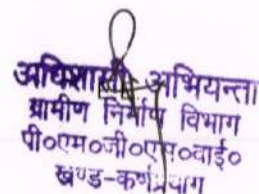 अधिशासी अभियन्ता
ग्रामीण निर्माण विभाग
पी०एम०जी०एस०वाई०
खण्ड-कर्णप्रयाग